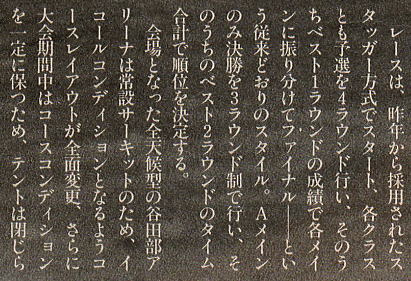 レースは、昨年から採用されたス
タッガー方式でスタート、各クラス
とも予選を4ラウンド行い、そのう
ちベスト1ラウンドの成績で各メイ
ンに振り分けてファイナル——とい
う従来どおりのスタイル。Aメイン
のみ決勝を3ラウンド制で行い、そ
のうちのベスト2ラウンドのタイム
合計で順位を決定する。
会場となった全天候型の谷田部ア
リーナは常設サーキットのため、イ
コールコンディションとなるようコ
ースレイアウトが全面変更、さらに
大会期間中はコースコンディション
を一定に保つため、テントは閉じら